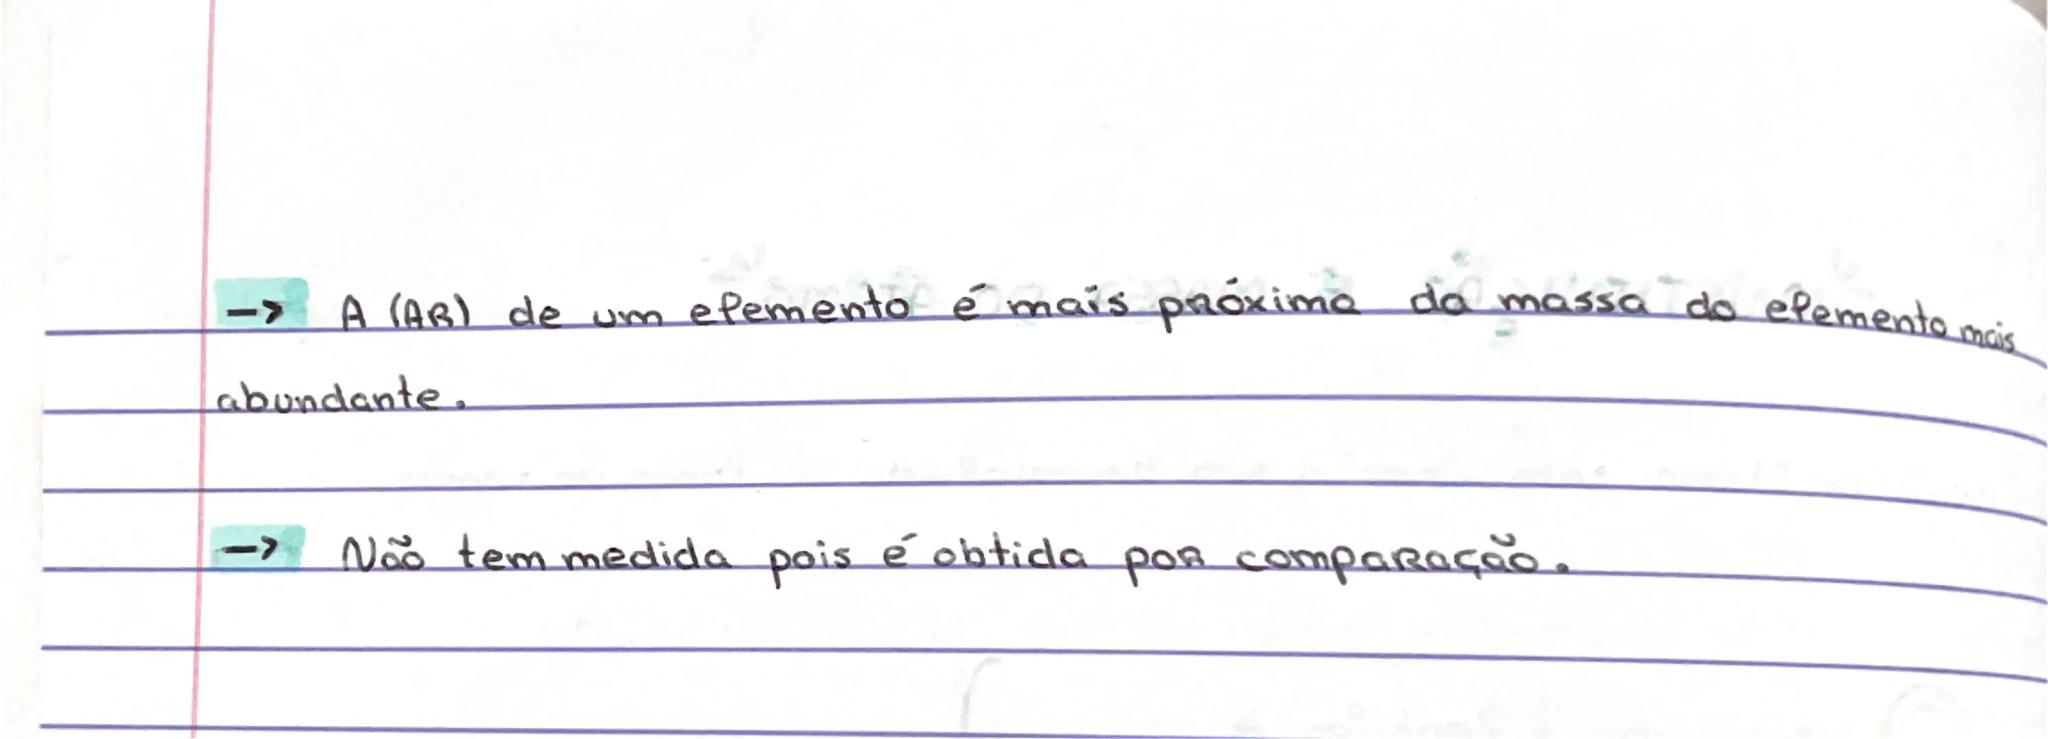 → A (AR) de um elemento é mais próxima da massa do elemento mais
abundante.
→ Não tem medida pois é obtida por comparação.